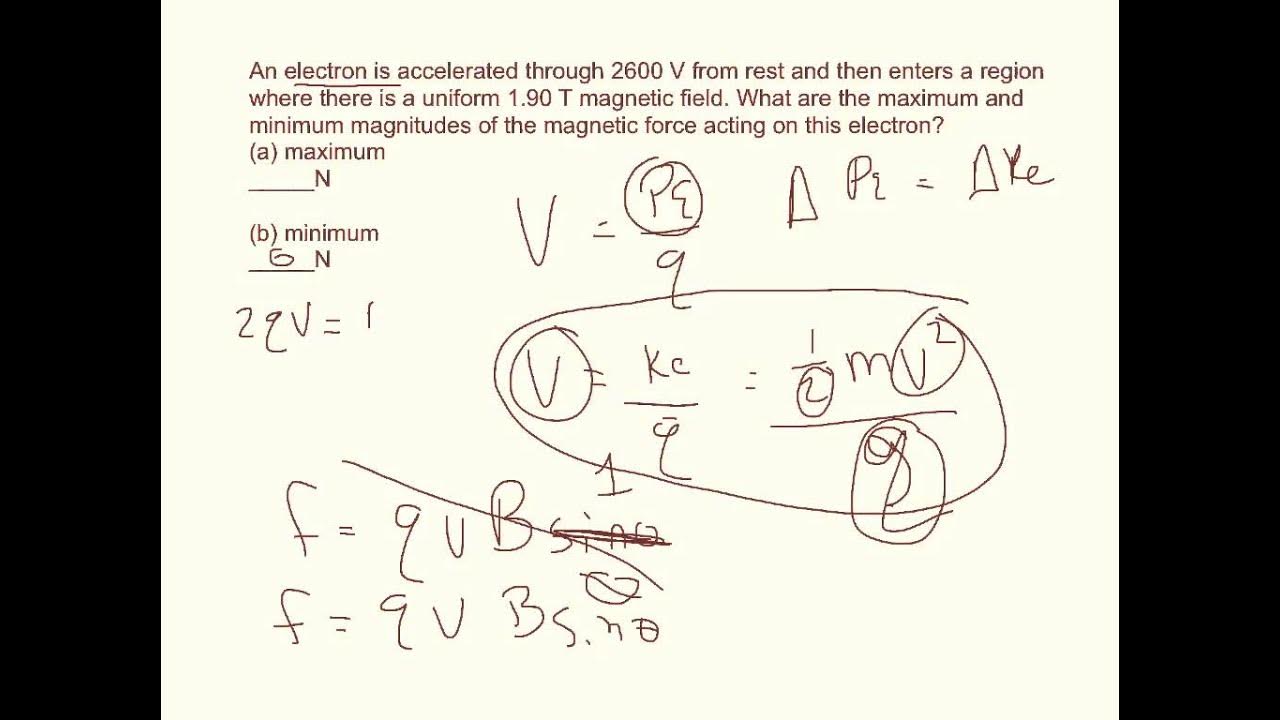 An electron is accelerated through 2600 V from rest and then enters a region
where there is a uniform 1.90 T magnetic field. What are the maximum and
minimum magnitudes of the magnetic force acting on this electron?
(a) maximum
_____N
V = PE / q
Δ PE = ΔKe
(b) minimum
_____N
2qV = 
V = Ke / q = 1/2 mv² / q
1
f = qvB sinθ
f = qvB sinθ